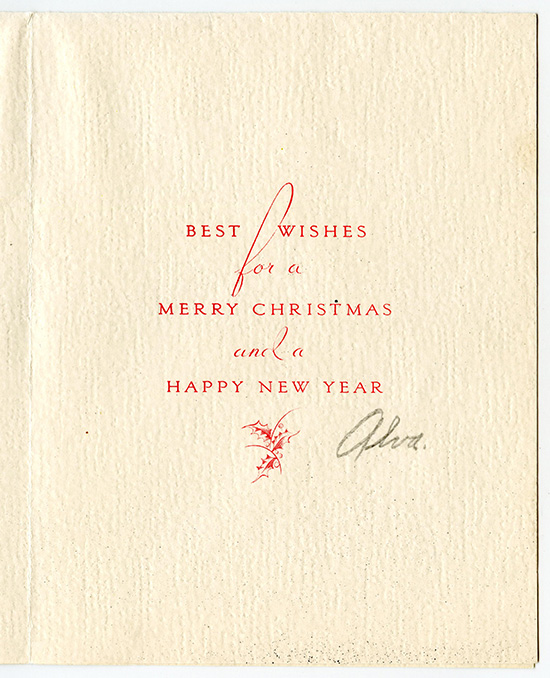 BEST WISHES
for a
MERRY CHRISTMAS
and a
HAPPY NEW YEAR
Alva.